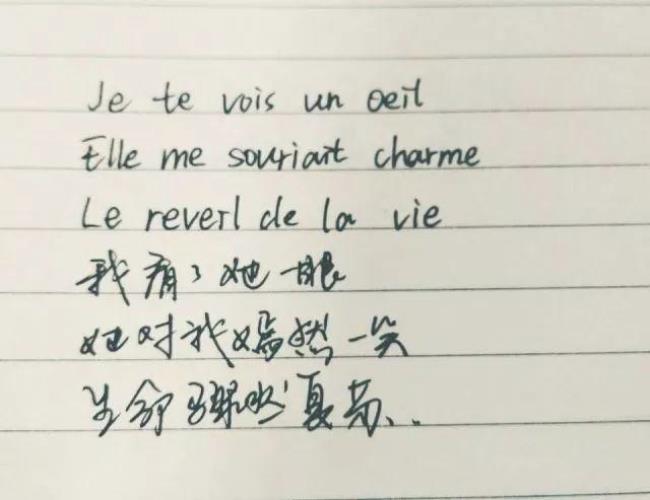 Je te vois un oeil
Elle me souriait charme
Le reveil de la vie
我了她一眼
她对我嫣然一笑
生命骤然复苏..